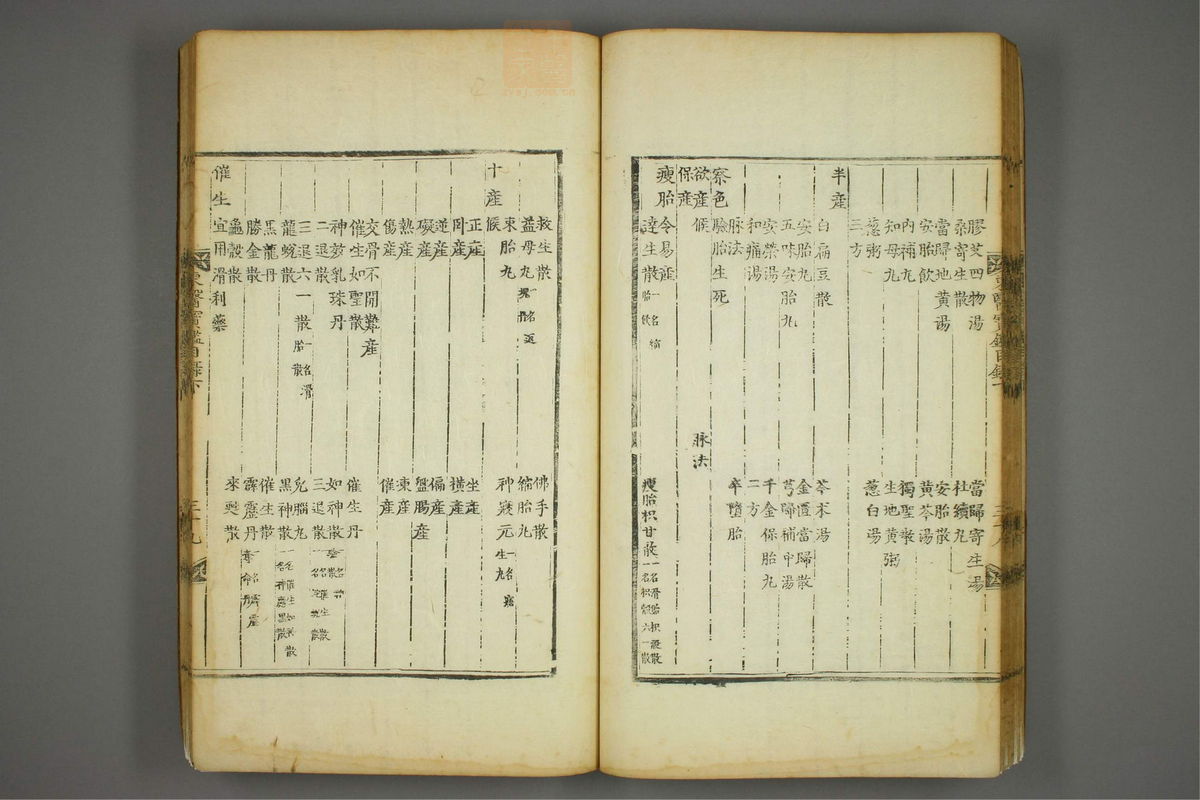 膠艾四物湯 當歸寄生湯
桑寄生散 杜續丸
當歸地黃湯 安胎散
安胎飲 黃芩湯
內補丸 獨聖散
知母丸 生地黃粥
葱粥 葱白湯
三方
半產
白扁豆散 芩朮湯
安胎丸 金匱當歸散
五味安胎丸 芎歸補中湯
安榮湯 千金保胎丸
和痛湯 二方
脉法 卒墮胎
察色驗胎生死
欲產候 脉法
保產令易產
瘦胎達生散一名縮胎飮 瘦胎枳甘散一名滑胎枳殼散一名枳殼六一散
東醫寶鑑目錄下 三十八
救生散 佛手散
益母丸 縮胎丸
束胎丸 神寢元一名寤生丸
十產候
正產 坐產
卧產 橫產
逆產 偏產
礙產 盤腸產
熱產 凍產
傷產 催產
交骨不開難產
催生如聖散 催生丹
神效乳珠丹 如神散
二退散 三退散
三退六一散一名滑胎散 兔腦丸
龍蛻散 黑神散
黑龍丹 催生散
勝金散 霹靂丹
龜殼散 來甦散
催生宜用滑利藥
東醫寶鑑目錄下 三十九